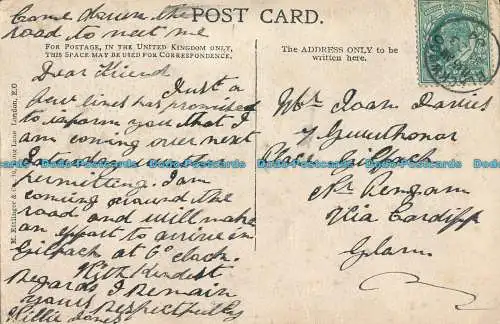 Come down the
road to meet me
POST CARD.
FOR POSTAGE, IN THE UNITED KINGDOM ONLY,
THIS SPACE MAY BE USED FOR CORRESPONDENCE.
The ADDRESS ONLY to be
written here.
Dear Friend
Just a
few lines has promised
to inform you that I
am coming over next
Saturday weather
permitting. I am
coming around the
road and will make
an effort to arrive in
Gilfach at 6 o'clock.
With Kindest
Regards I Remain
yours Respectfully
Willie Jones
Mr. Joan Davies
y Gwerthonor
Gilfach
Nr Pengam
Via Cardiff
Glam
London, E.C
Delcampe